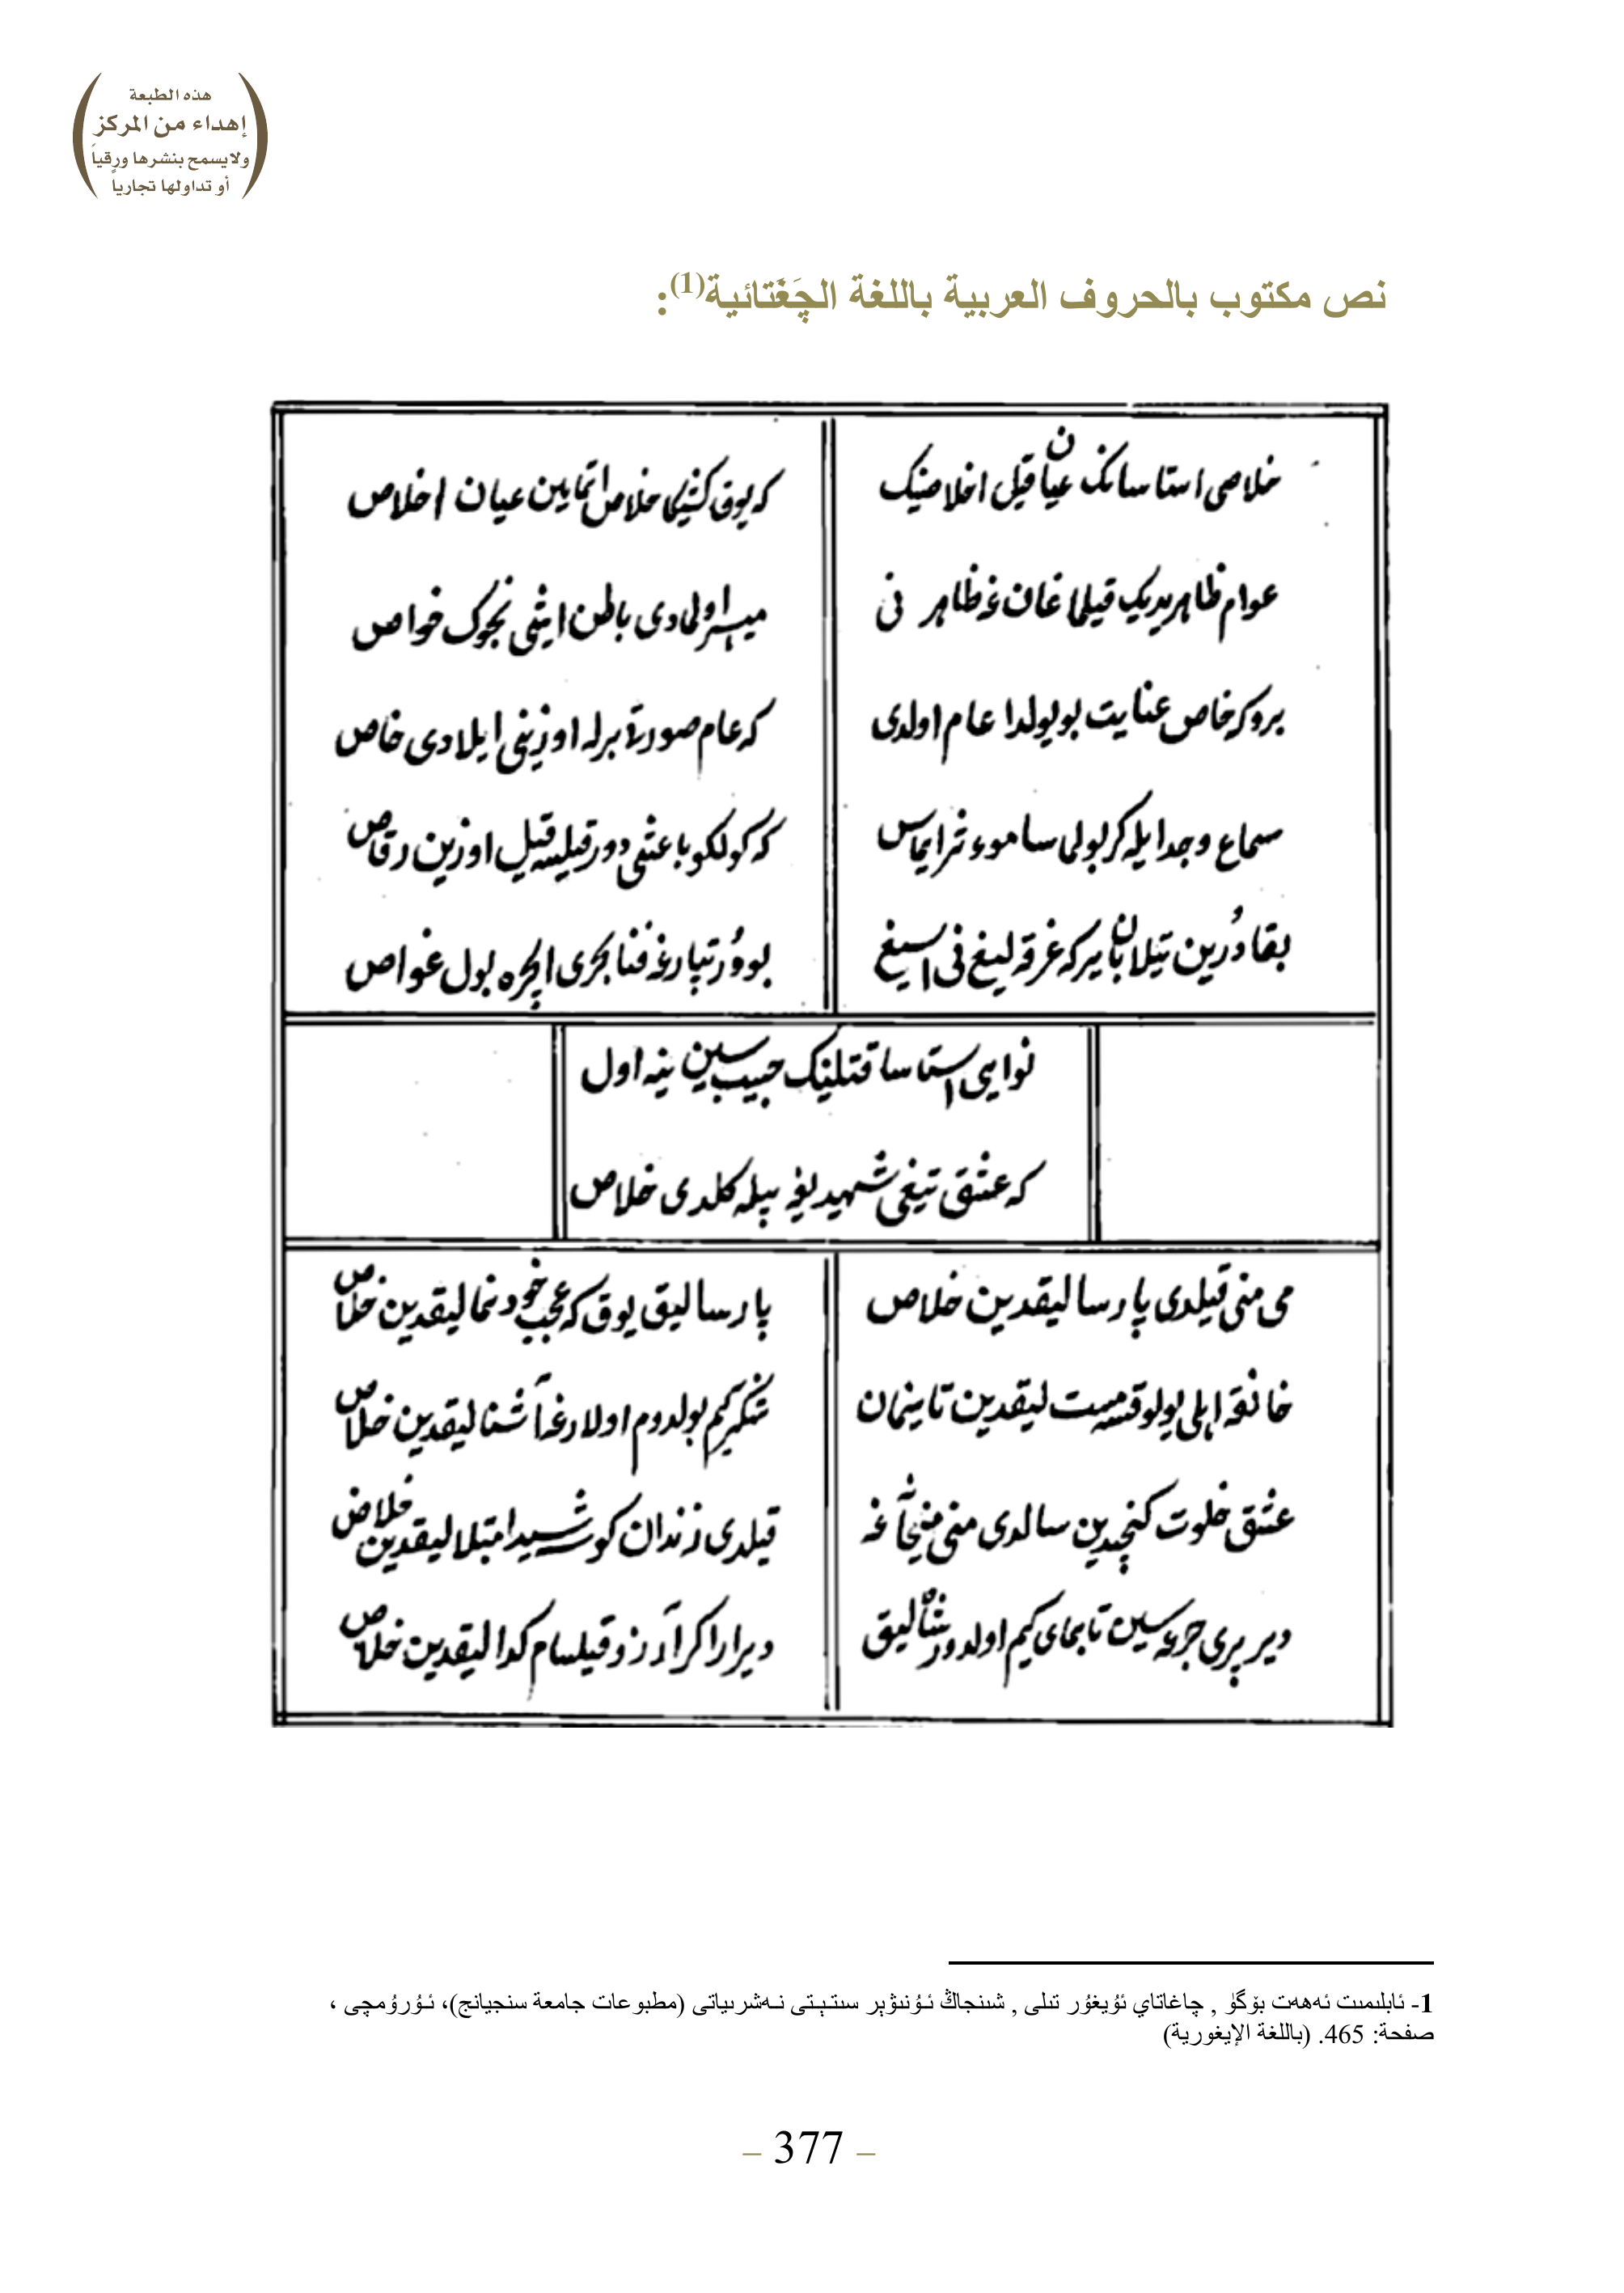 هذه الطبعة
إهداء من المركز
ولا يسمح بنشرها ورقياً
أو تداولها تجارياً
نص مكتوب بالحروف العربية باللغة الچَغَتائية(1):
خلاصی استاسانک عیان قیل اخلاصینک
که یوق کشیکا خلاص ایتمایین عیان اخلاص
عوام ظاهریدیک قیلماغان غه ظاهر نی
میسر اولمادی باطن ایشی نچوک خواص
بروکه خاص عنایت بو یولدا عام اولدی
که عام صورتی برله اوزینی ایلادی خاص
سماع وجد ایله کر بولی سا موء ثر ایماس
که کولکو باعثی دور قیلیبه قیل اوزین رقاص
بقا دُرین تیلابان بیرکه غرقه لیغ نی اسیغ
بو دُر تیارغه فنا بحری ایچره بول غواص
نوایی استاسا قتلینک حبیب سین ینه اول
که عشق تیغی شهیدلیغ بیله کلدی خلاص
می منی قیلدی پارسالیقدین خلاص
پارسالیق یوق که عجب خودنمالیقدین خلاص
خانقه اهلی یولوقسه مست لیقدین تانیمان
شکر کیم بولدوم اولارغه آشنالیقدین خلاص
عشق خلوت کنجیدین سالدی منی
قیلدی زندان کورشید امبتلالیقدین خلاص
دیر پیری جرعه سین تابمای کیم اولدور شاه لیق
دیرارا کر آرزو قیلسام کدالیقدین خلاص
1- ئابلىمىت ئەھەت بۆگۈ , چاغاتاي ئۇيغۇر تىلى , شىنجاڭ ئۇنىۋېر سىتېتى نەشرىياتى (مطبوعات جامعة سنجيانج)، ئۈرۈمچى ،
صفحة: 465. (باللغة الإيغورية)
– 377 –